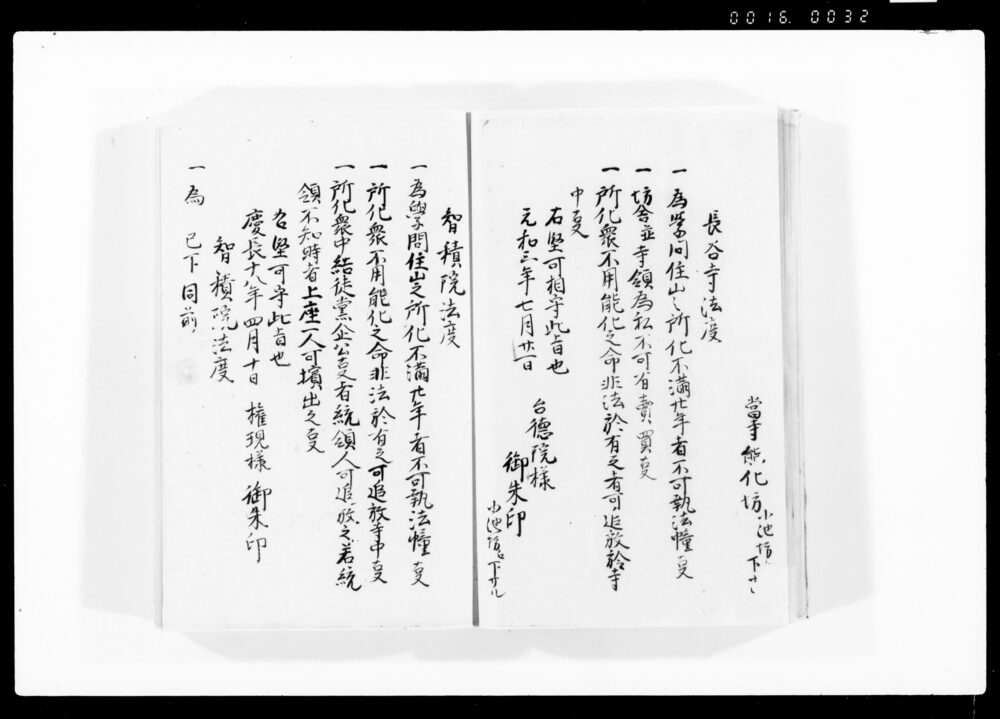 0016. 0032
當寺能化坊小池坊
長谷寺法度
一為学问住山之所化不滿廿年者不可執法幢叓
一坊舎並寺領為私不可有賣買叓
一所化衆不用能化之命非法於有之者可追放於寺
中叓
右堅可相守此旨也
元和三年七月廿一日
台德院様
御朱印
小池坊
智積院法度
一為學問住山之所化不滿廿年者不可執法幢叓
一所化衆不用能化之命非法於有之可追放寺中叓
一所化衆中結徒黨企公叓者統領人可追放之若統
領不知時者上座一人可擯出之叓
右堅可守此旨也
慶長十八年四月十日 權現様 御朱印
智積院法度
一為 已下同前